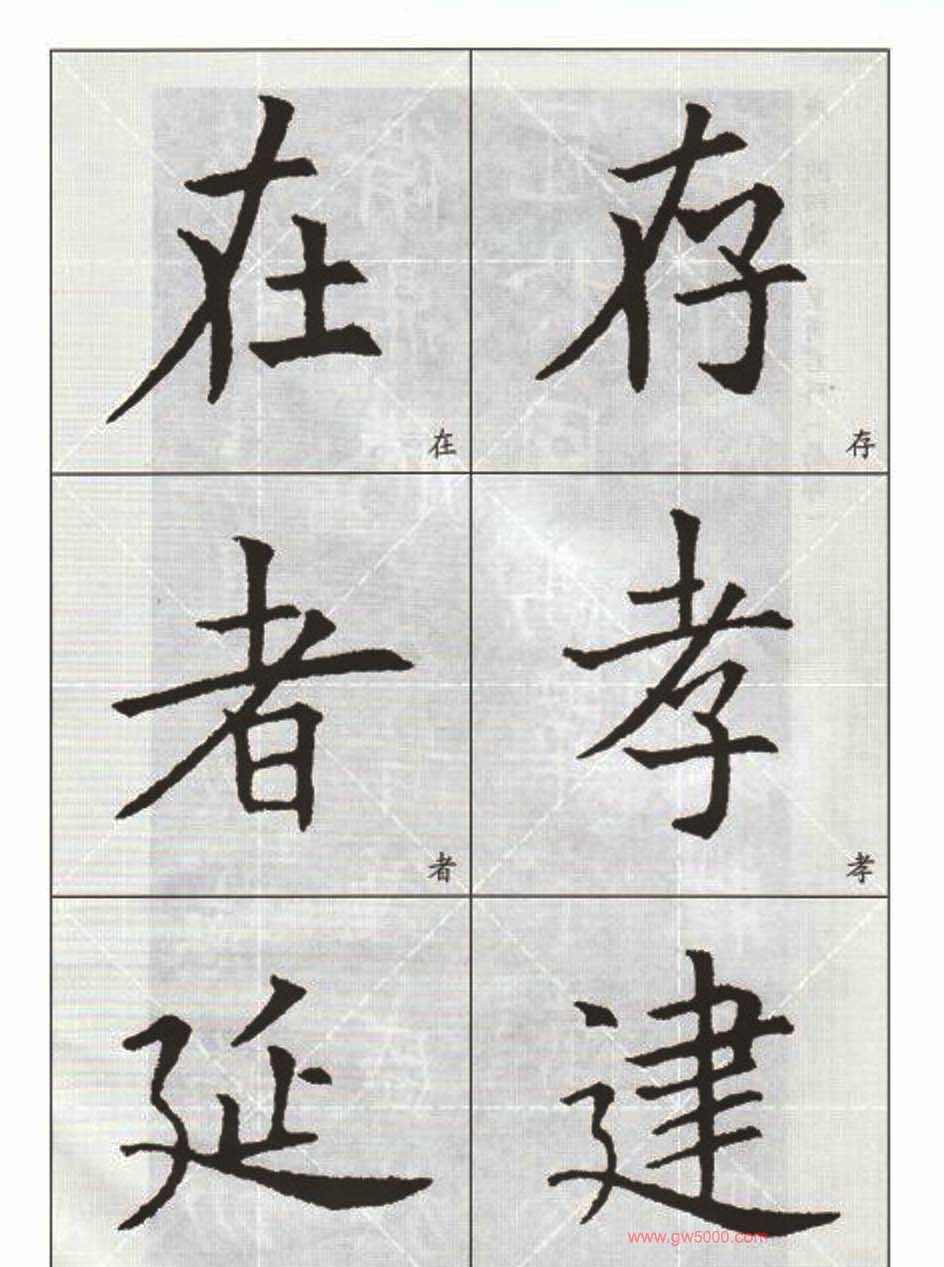 在 存
在 存
者 孝
者 孝
延 建
www.gw5000.com